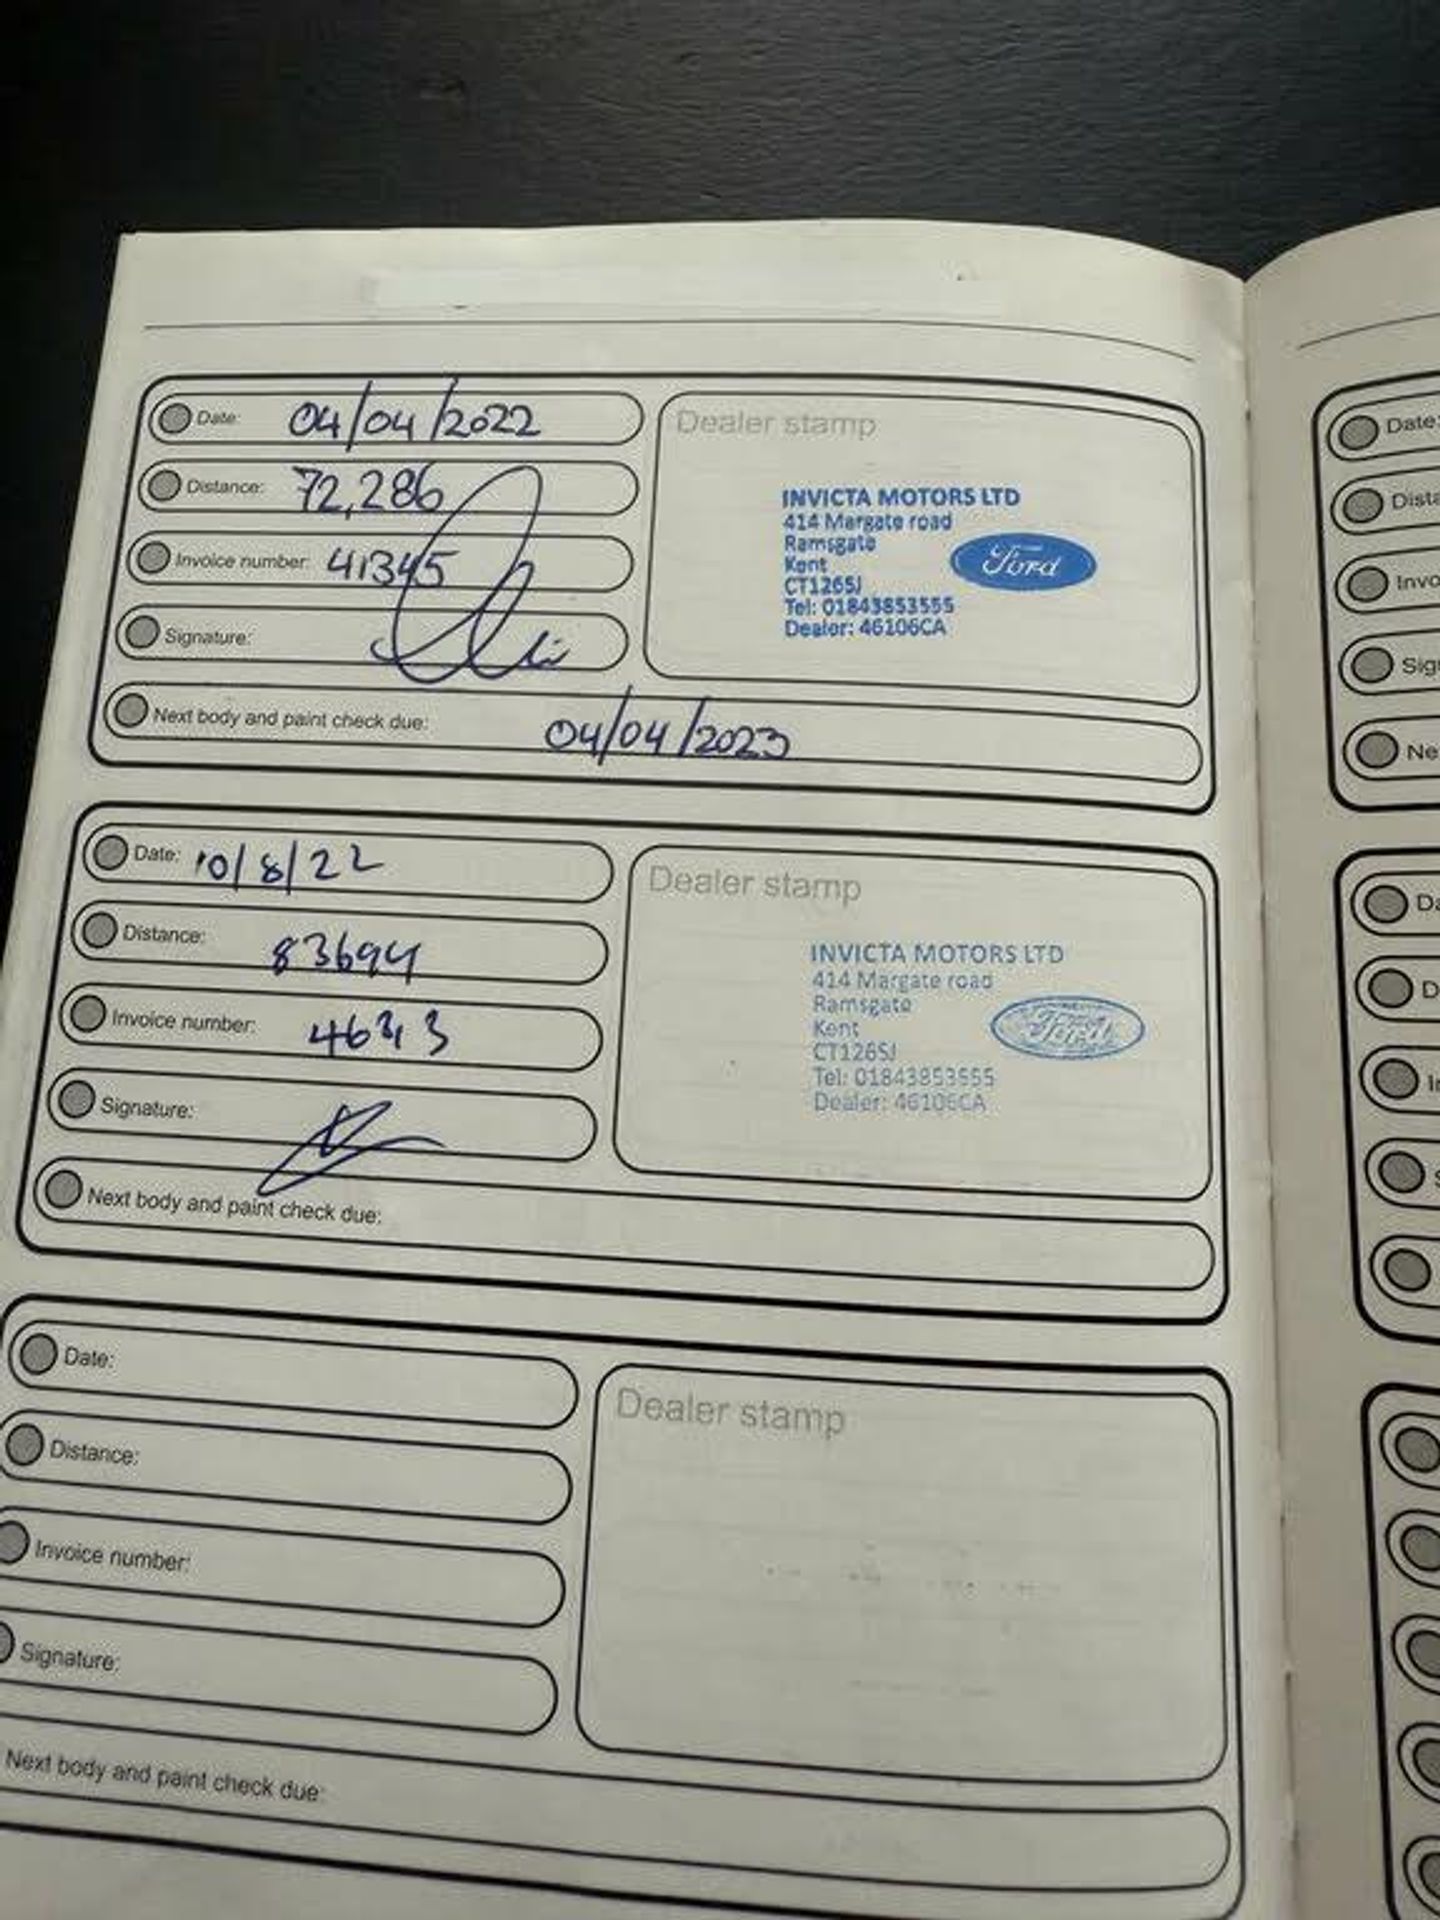 Date: 04/04/2022
Distance: 72,286
Invoice number: 41345
Signature:
Next body and paint check due: 04/04/2023
Dealer stamp
INVICTA MOTORS LTD
414 Margate road
Ramsgate
Kent
CT126SJ
Tel: 01843853555
Dealer: 46106CA
Ford
Date: 10/8/22
Distance: 83694
Invoice number:
Signature:
Next body and paint check due:
Dealer stamp
INVICTA MOTORS LTD
414 Margate road
Ramsgate
Kent
CT126SJ
Tel: 01843853555
Dealer: 46106CA
Ford
Date:
Distance:
Invoice number:
Signature:
Next body and paint check due:
Dealer stamp
Date:
Dista
Invo
Sig
Ne
Da
D